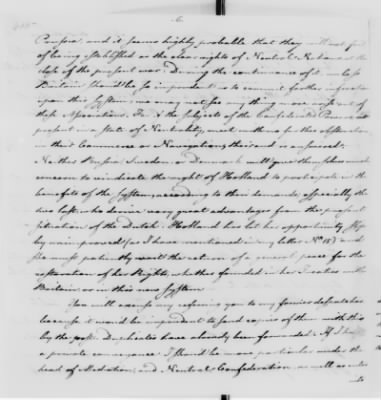 6.
Russia and it seems highly probable that they will not fail
of being established as the clear rights of Neutral Nations at the
close of the present war. During the continuance of it, unless
Britain should be so imprudent as to commit further infractions
upon this System, we may not see any thing more come out of
these Associations. For if the subjects of the Confederated Powers, at
present in a state of Neutrality, meet with no further obstruction
in their Commerce or Navigation, their end is answered.
Neither Russia Sweden or Denmark will give themselves much
concern to vindicate the right of Holland to participate in the
benefits of the System, according to their demands, especially the
two last, who derive very great advantages from the present
situation of the Dutch. Holland has let her opportunity slip
by unimproved (as I have mentioned in my letter No. 18) and
she must patiently wait the return of a general peace for the
restoration of her Rights, whether founded in her Treaties with
Britain or on this new System.
You will excuse my referring you to my former
because it would be imprudent to send copies of them with this
by the post. Duplicates have already been forwarded. If I had
a private conveyance I should be more particular under the
head of Mediation, and Neutral Confederation, as well as under